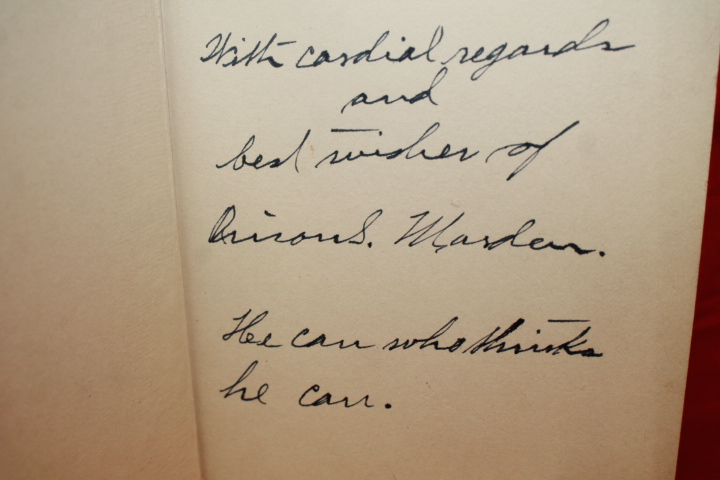 With cordial regards
and
best wishes of
Orison S. Marden.
He can who thinks
he can.